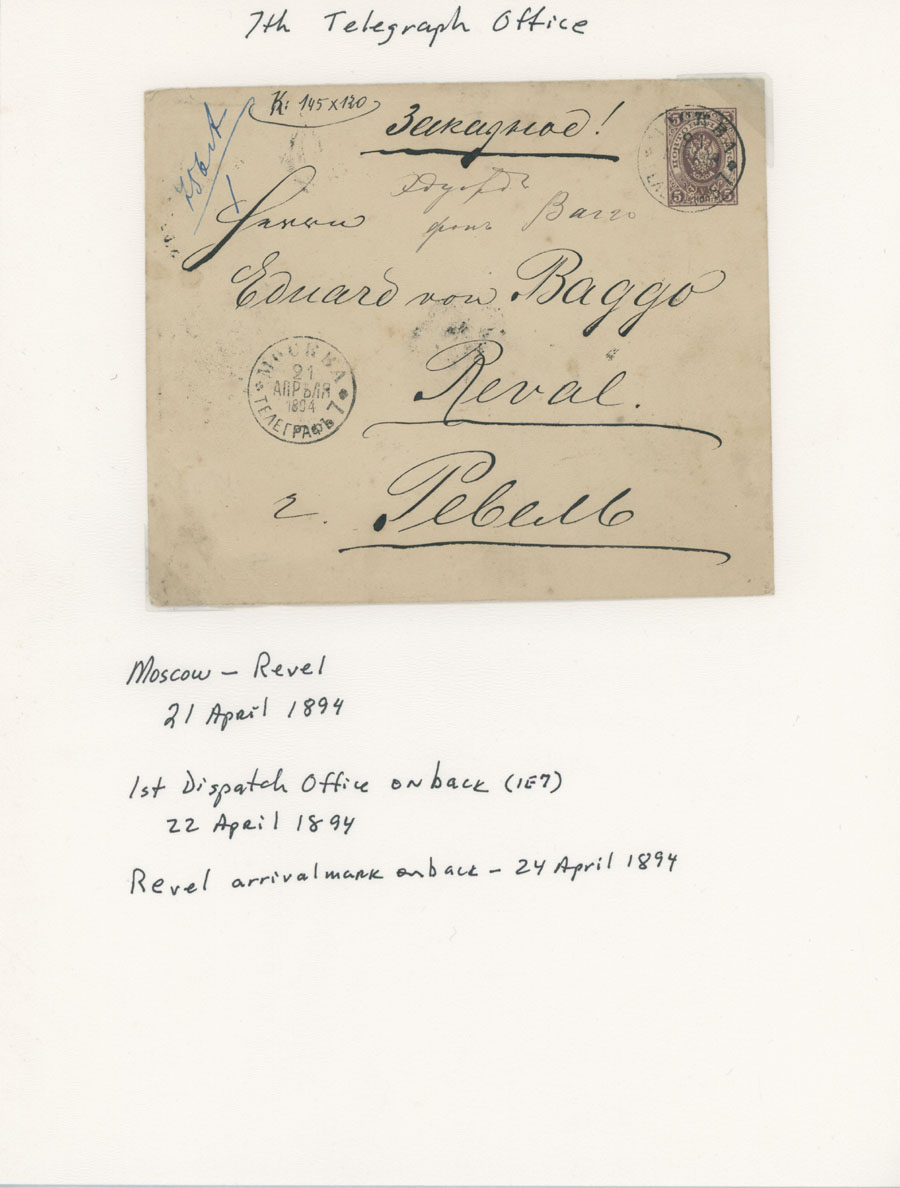 7th Telegraph Office
К: 145 x 120
Заказное!
Herrn
Эдуардъ
фонъ Багго
Eduard von Baggo
МОСКВА
21
АПРѢЛЯ
1894
ТЕЛЕГРАФЪ 7
Reval.
г. Ревель
Moscow – Revel
21 April 1894
1st Dispatch Office on back (1E7)
22 April 1894
Revel arrival mark on back – 24 April 1894